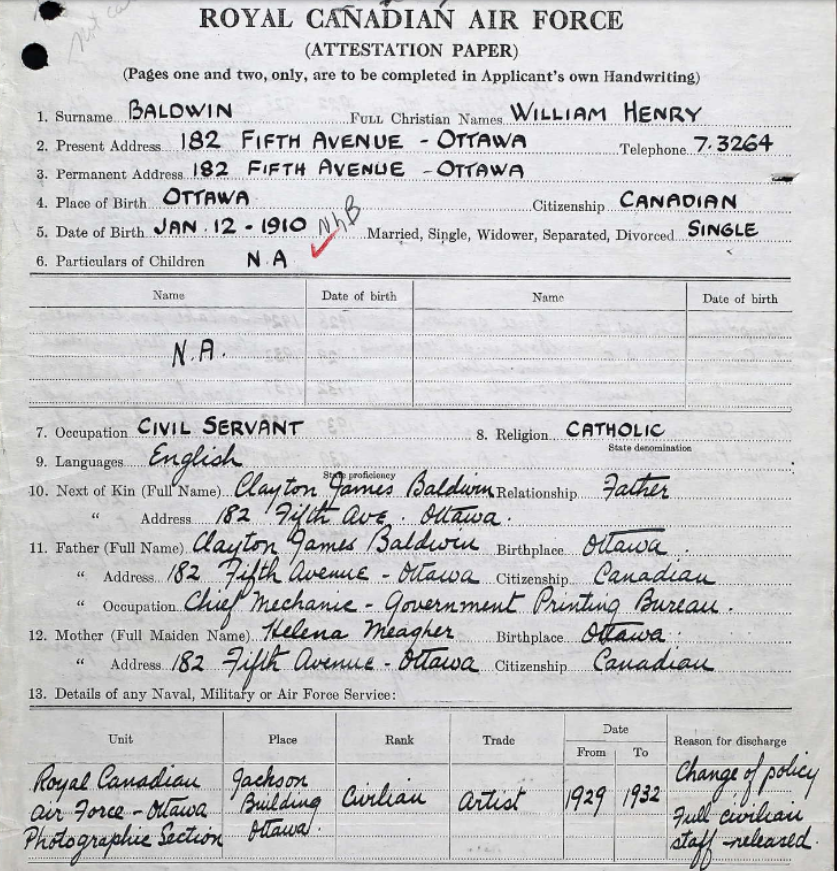 ROYAL CANADIAN AIR FORCE
(ATTESTATION PAPER)
(Pages one and two, only, are to be completed in Applicant's own Handwriting)
1. Surname BALDWIN FULL Christian Names WILLIAM HENRY
2. Present Address 182 FIFTH AVENUE - OTTAWA Telephone 7.3264
3. Permanent Address 182 FIFTH AVENUE - OTTAWA
4. Place of Birth OTTAWA Citizenship CANADIAN
5. Date of Birth JAN. 12 - 1910 Married, Single, Widower, Separated, Divorced SINGLE
6. Particulars of Children N.A
Name Date of birth Name Date of birth
N.A.
7. Occupation CIVIL SERVANT 8. Religion CATHOLIC
State denomination
9. Languages English
State proficiency
10. Next of Kin (Full Name) Clayton James Baldwin Relationship Father
" Address 182 Fifth Ave. Ottawa.
11. Father (Full Name) Clayton James Baldwin Birthplace Ottawa.
" Address 182 Fifth Avenue - Ottawa Citizenship Canadian
" Occupation Chief Mechanic - Government Printing Bureau.
12. Mother (Full Maiden Name) Helena Meagher Birthplace Ottawa.
" Address 182 Fifth Avenue - Ottawa Citizenship Canadian
13. Details of any Naval, Military or Air Force Service:
Unit Place Rank Trade Date Reason for discharge
From To
Royal Canadian Air Force - Ottawa Photographic Section
Jackson Building Ottawa.
Civilian
Artist
1929
1932
Change of policy
Full civilian staff - released.